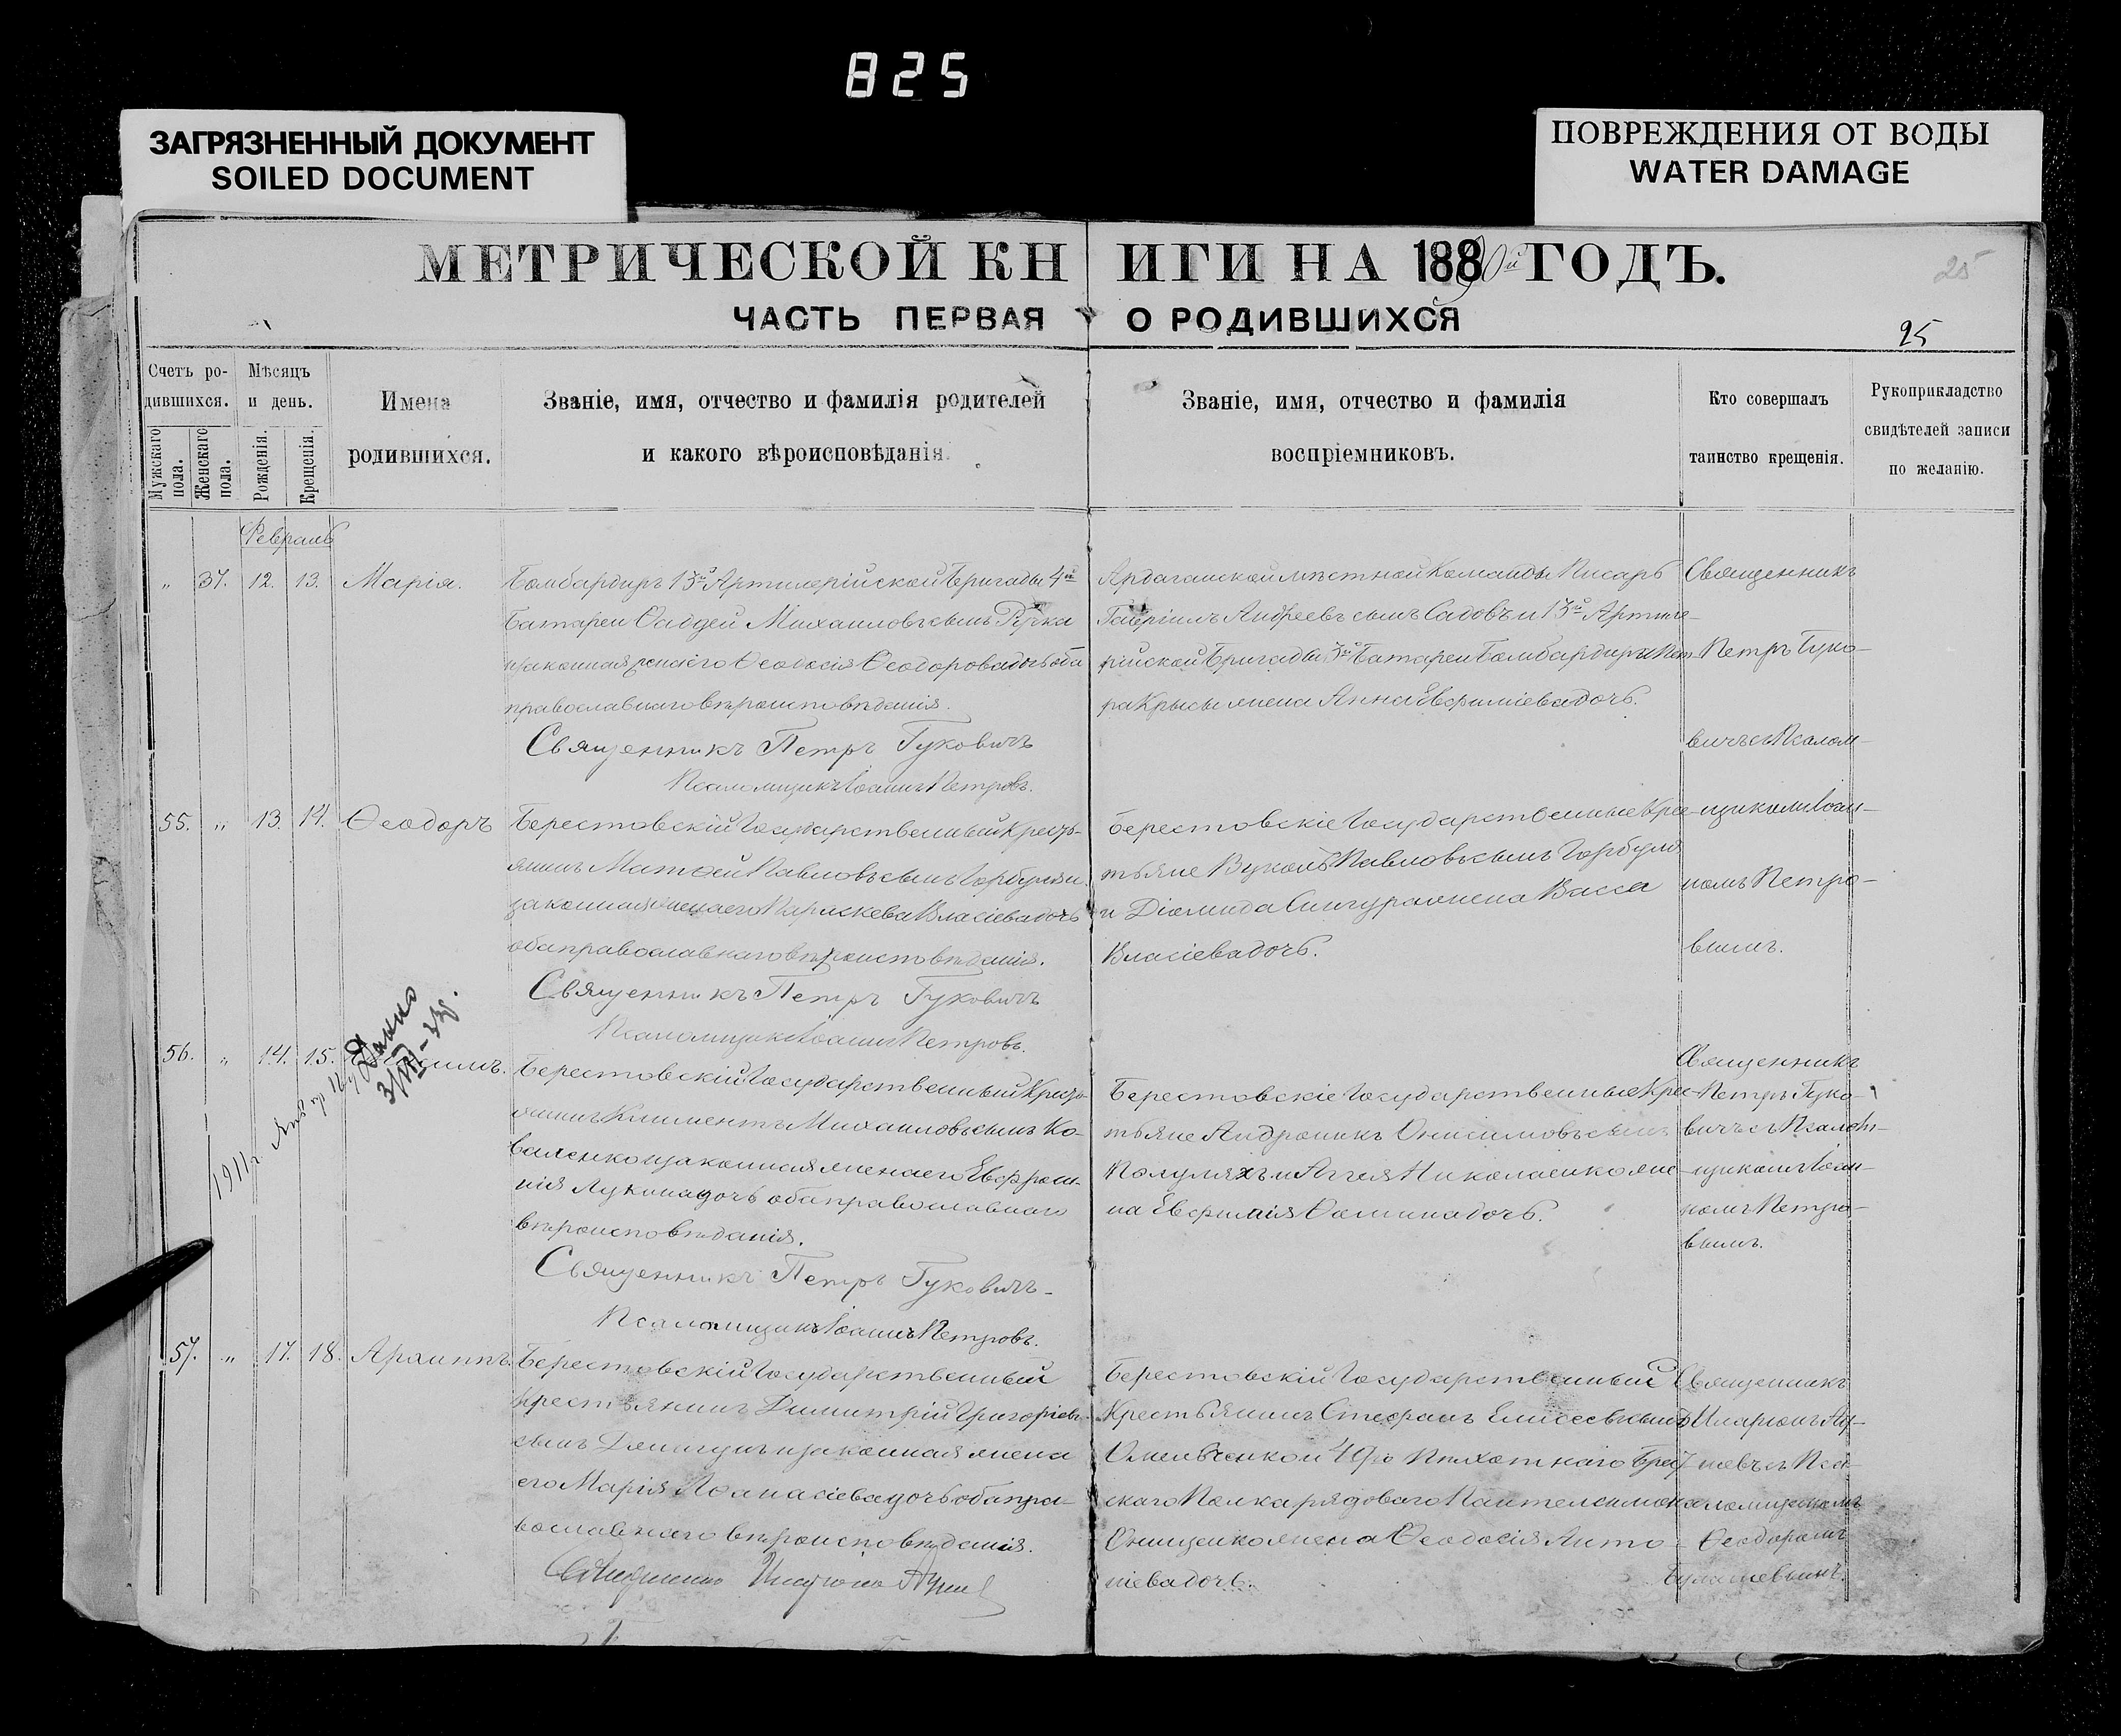 825
ЗАГРЯЗНЕННЫЙ ДОКУМЕНТ
SOILED DOCUMENT
ПОВРЕЖДЕНИЯ ОТ ВОДЫ
WATER DAMAGE
МЕТРИЧЕСКОЙ КНИГИ НА 1890й ГОДЪ.
25
ЧАСТЬ ПЕРВАЯ О РОДИВШИХСЯ
25
Счетъ родившихся.
Мужскаго пола.
Женскаго пола.
Мѣсяцъ и день.
Рожденія.
Крещенія.
Имена родившихся.
Званіе, имя, отчество и фамилія родителей
и какого вѣроисповѣданія.
Званіе, имя, отчество и фамилія
воспріемниковъ.
Кто совершалъ
таинство крещенія.
Рукоприкладство
свидѣтелей записи
по желанію.
Февраль
„ 37. 12. 13. Марія.
Бомбардиръ 13й Артилерійской Бригады 4й
Батареи Ѳаддей Михаиловъ сынъ
и законная жена его Ѳеодосія Ѳеодорова дочь оба
православнаго вѣроисповѣданія.
Священникъ Петръ Гуковичъ
Псаломщикъ Іоаннъ Петровъ.
Ардаганской мѣстной Команды Писарь
Гавріилъ Андреевъ сынъ Садовъ и 13й Артиле-
рійской Бригады 3й Батареи Бомбардира Пет-
ра Крысы жена Анна Евфиміева дочь.
Священникъ
Петръ Гуко-
вичъ съ Псалом-
щикомъ Іоан-
номъ Петро-
вымъ.
55. „ 13. 14. Ѳеодоръ
Берестовскій Государственный Кресть-
янинъ Матѳей Павловъ сынъ Горбуля и
законная жена его Параскева Власіева дочь
оба православнаго вѣроисповѣданія.
Священникъ Петръ Гуковичъ
Псаломщикъ Іоаннъ Петровъ.
Берестовскіе Государственные Крес-
тьяне Вуколъ Павловъ сынъ Горбуля
и Діомида Сингура жена Васса
Власіева дочь.
56. „ 14. 15.
1911г
Берестовскій Государственный Кресть-
янинъ Климентъ Михаиловъ сынъ Ко-
валенко и законная жена его Евфроси-
нія Лукина дочь оба православнаго
вѣроисповѣданія.
Священникъ Петръ Гуковичъ
Псаломщикъ Іоаннъ Петровъ.
Берестовскіе Государственные Крес-
тьяне Андроникъ Онисимовъ сынъ
Полуляхъ и Аггея Николаенко же-
на Евфимія Ѳомина дочь.
Священникъ
Петръ Гуко-
вичъ съ Псалом-
щикомъ Іоан-
номъ Петро-
вымъ.
57. „ 17. 18. Архиппъ.
Берестовскій Государственный
крестьянинъ Димитрій Григорьевъ
сынъ и законная жена
его Марія Аѳанасіева дочь оба пра-
вославнаго вѣроисповѣданія.
Берестовскій Государственный
Крестьянинъ Стефанъ Елисеевъ сынъ
Омельченко и 49го Пѣхотнаго Брест-
скаго Полка рядоваго Пантелеимона
Онищенко жена Ѳеодосія Анто-
ніева дочь.
Священникъ
съ Пса-
ломщикомъ
Ѳеодоромъ